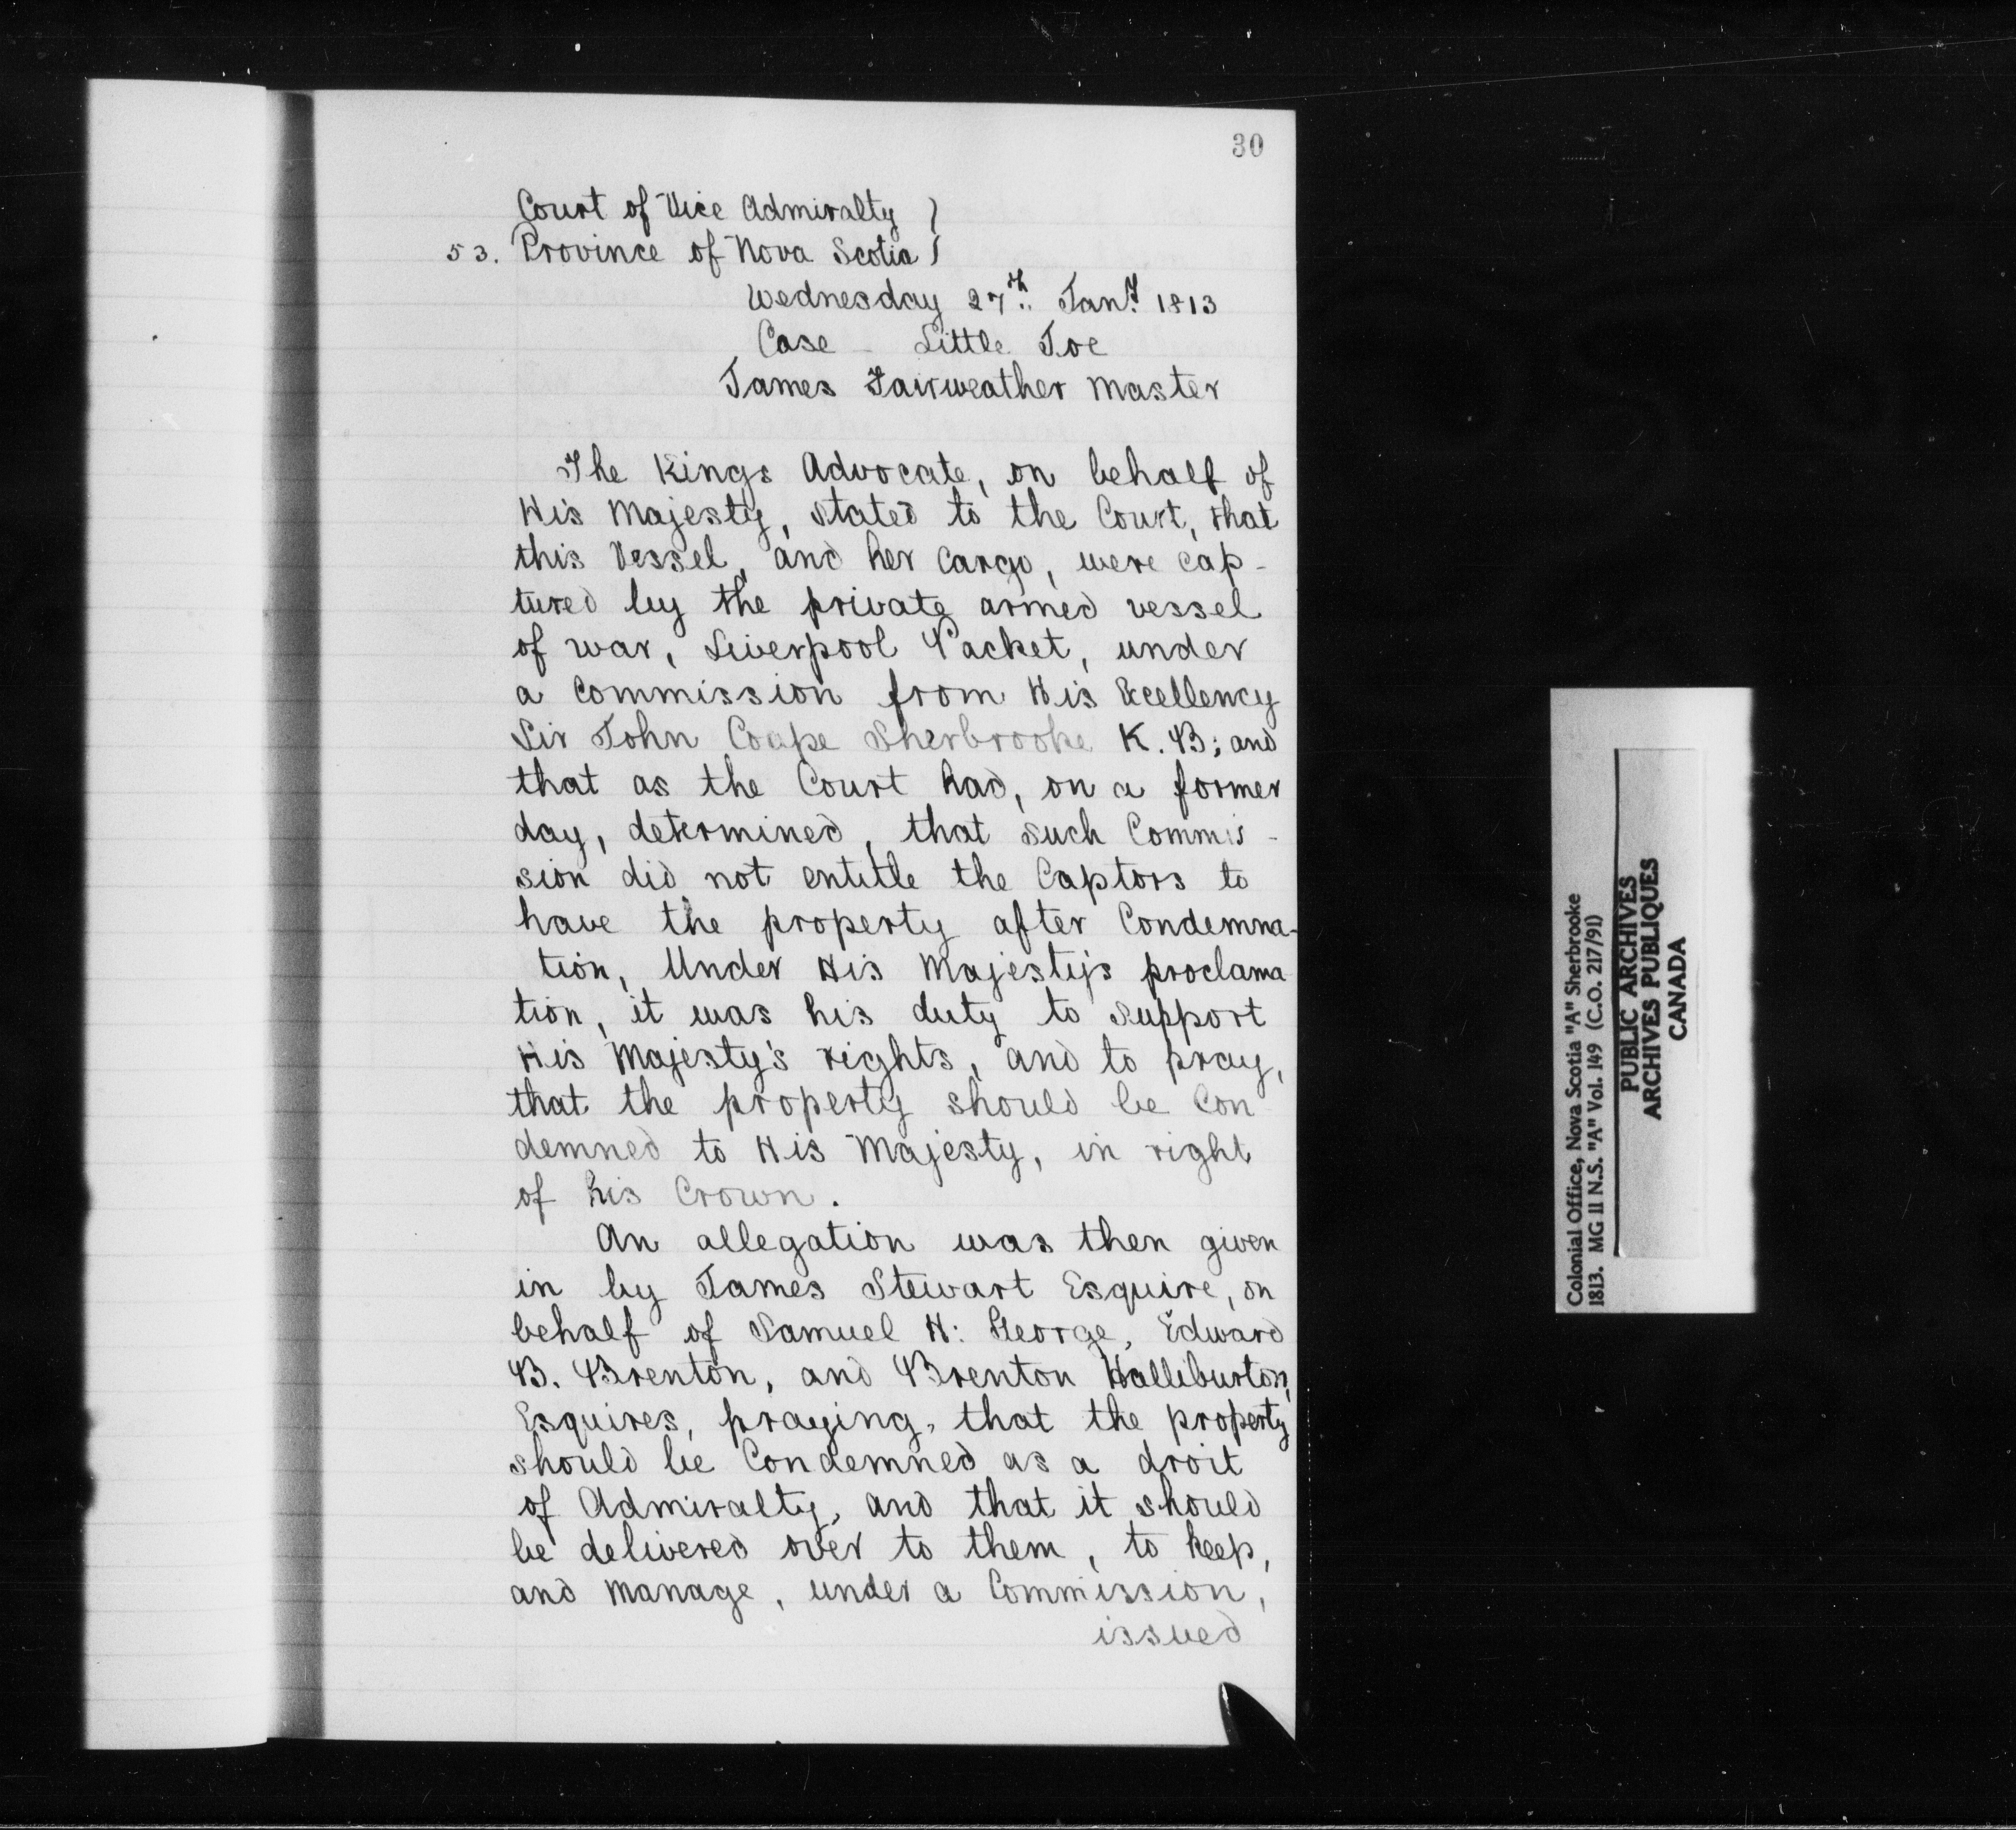 30
Court of Vice Admiralty )
53. Province of Nova Scotia )
Wednesday 27th Jany 1813
Case - Little Joe
James Fairweather Master
The Kings Advocate, on behalf of
His Majesty, stated to the Court, that
this Vessel, and her Cargo, were cap-
tured by the private armed vessel
of war, Liverpool Packet, under
a Commission from His Ecellency
Sir John Coape Sherbrooke K.B; and
that as the Court had, on a former
day, determined, that such Commis-
sion did not entitle the Captors to
have the property after Condemna-
tion, Under His Majesty's proclama
tion, it was his duty to support
His Majesty's rights, and to pray,
that the property should be Con
demned to His Majesty, in right
of his Crown.
An allegation was then given
in by James Stewart Esquire, on
behalf of Samuel H: George, Edward
B. Brenton, and Brenton Halliburton,
Esquires, praying, that the property
should be Condemned as a droit
of Admiralty, and that it should
be delivered over to them, to keep,
and manage, under a Commission,
issued
Colonial Office, Nova Scotia "A" Sherbrooke
1813. MG 11 N.S. "A" Vol. 149 (C.O. 217/91)
PUBLIC ARCHIVES
ARCHIVES PUBLIQUES
CANADA